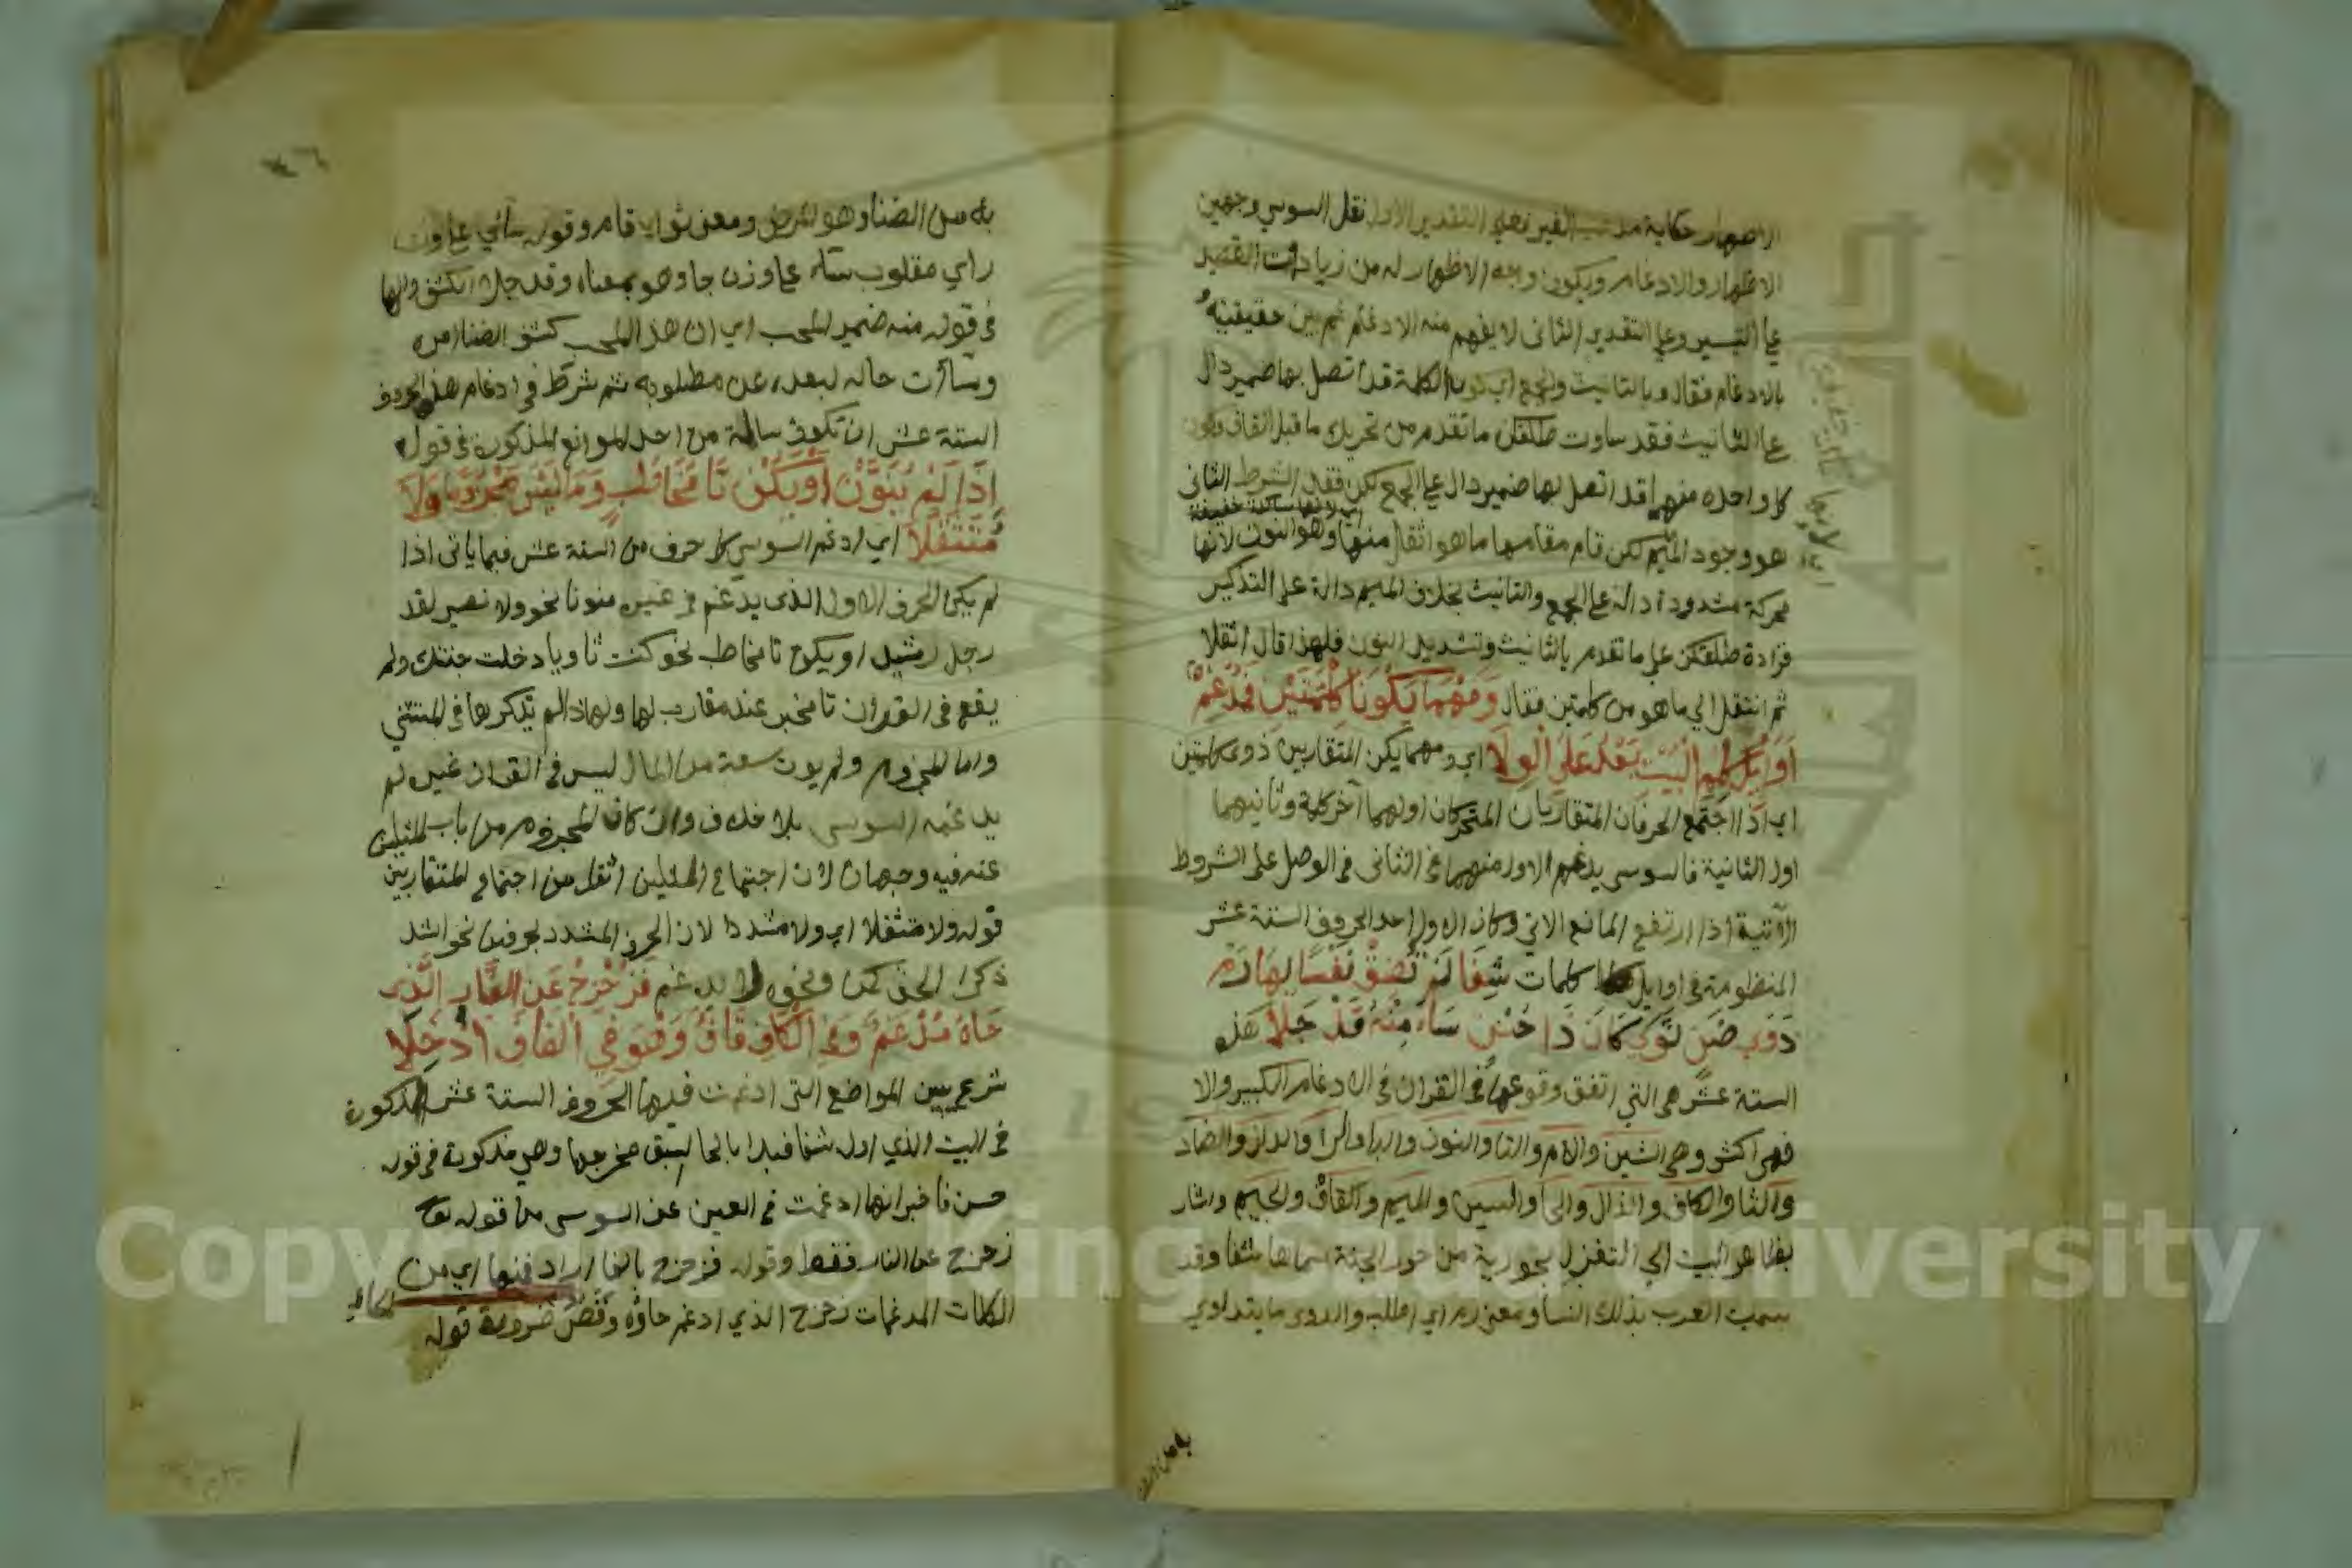 الاظهار حكاية مذهب الغير فعلى التقدير الاول نقل السوسي وجهين
الاظهار والادغام ويكون وجه الاظهار له من زيادات القصيد
على التيسير وعلى التقدير الثاني لا يفهم منه الا دغم ثم بين حقيقته
بالادغام فقال وبالتانيث والجمع اي كون الكلمة قد اتصل بها ضمير دال
على التانيث فقد ساوت طلقكن ما تقدم من تحريك ما قبل القاف وكون
كل واحدة منهما قد اتصل بها ضمير دال على الجمع لكن فقد الشرط الثاني
اي لانها ساكنة خفيفة
هو وجود الميم لكن قام مقامها ما هو اثقل منها وهو النون لانها
محركة مشدودة دالة على الجمع والتانيث بخلاف الميم دالة على التذكير
فزادة طلقكن على ما تقدم بالتانيث وتشديد النون فلهذا قال اثقلا
ثم انتقل الى ما هو من كلمتين فقال ومهما يكونا كلمتين فمدغم
اوايل كلم البيت بعد على الولا اي ومهما يكن المتقاربين ذوي كلمتين
اي اذا اجتمع الحرفان المتقاربان المتحركان اولهما آخر كلمة وثانيهما
اول الثانية فالسوسي يدغم الاول منهما في الثاني في الوصل على الشروط
الآتية اذا ارتفع المانع الاتي وكان الاول احد الحروف الستة عشر
المنظومة في اوايل كلمات شفا لم تضق نفسا بها رم
دوي ضن ثوي كان ذا حسن ساي منه قد جلا هذه
الستة عشر هي التي اتفق وقوعها في القران في الادغام الكبير والا
فهي اكثر وهي الشين والام والتا والنون والبا والرا والدال والضاد
والثا والكاف والذال والحا والسين والميم والقاف والجيم واشار
بظاهر البيت الى التغزل بحورية من حور الجنة سماها شفا وقد
سمت العرب بذلك النسا ومعنى رم اي اطلب والدوى ما يتداوي
به من الضنا
به من الضنا وهو المرض ومعنى ثوى اقام وقوله سائي على وزن
راي مقلوب ساء على وزن جا وهو بمعناه وقد جلا كشف والها
في قوله منه ضمير للمحب اي ان هذا المحب كشف الضنا امره
وساءت حاله لبعده عن مطلوبه ثم شرط في ادغام هذه الحروف
الستة عشر ان تكون سالمة من احد الموانع المذكورة في قوله
اذا لم ينون او يكن تا مخاطب وما ليس مجزوما ولا
متثقلا اي ادغم السوسي كل حرف من الستة عشر فيما ياتي اذا
لم يكن الحرف الاول الذي يدغم في غيره منونا نحو ولا نصير لقد
رجل رشيد او يكون تا مخاطب نحو كنت ثاويا دخلت جنتك ولم
يقع في القران تا مخبر عنده مقارب لها ولهذا لم يذكرها في المستثني
واما المجزوم ولم يوت سعة من المال ليس في القران غيره لم
يدغمه السوسي بلا خلاف وان كان المجزوم من باب المثلين
عنه فيه وجهان لان اجتماع المثلين اثقل من اجتماع المتقاربين
قوله ولا متثقلا اي ولا مشددا لان الحرف المشدد بحرفين نحو اشد
ذكرا الحق كمن ونحوه لا يدغم فزحزح عن النار الذي
حاه مدغم وفي الكاف قاف وهو في القاف ادخلا
شرع يبين المواضع التي ادغمت فيها الحروف الستة عشر المذكورة
في البيت الذي اوله شفا فبدا بالحا لسبق مخرجها وهي مذكورة في قوله
حسن فاخبر انها ادغمت في العين عن السوسي من قوله تعا
زحزح عن النار فقط وقوله فزحزح بالفا اراد فمنها اي من
الكلمات المدغمات زحزح الذي ادغم حاؤه وقصر ضرورة قوله